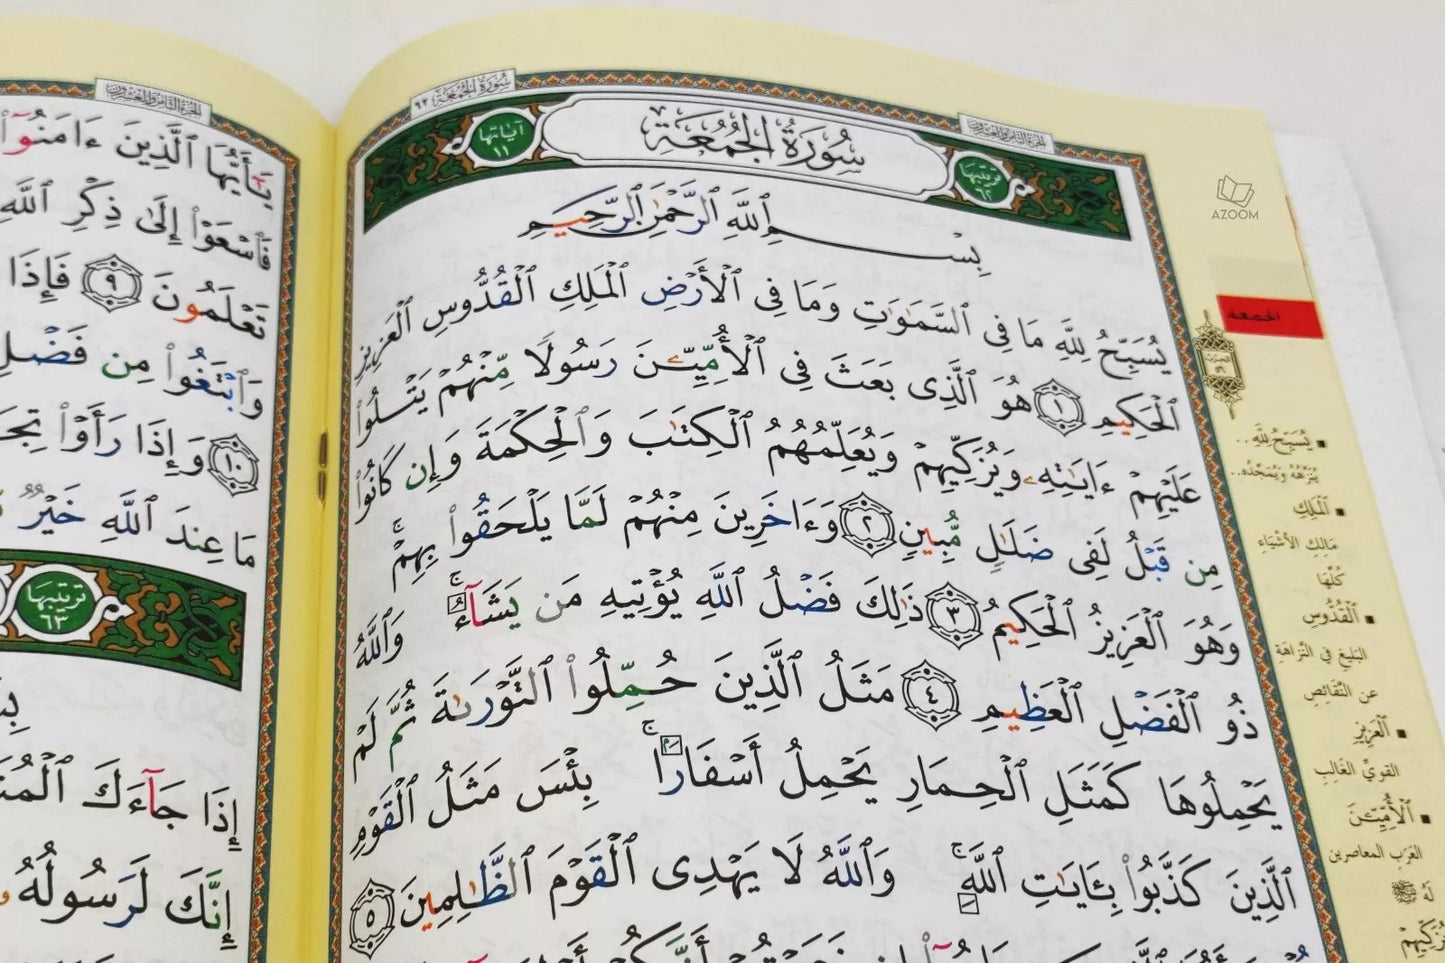 سُورَةُ الجُمُعَة ٦٢
الجُزءُ الثَّامِنُ وَالعِشرُونَ
آيَاتُهَا
١١
سُورَةُ الجُمُعَة
تَرْتِيبُهَا
٦٢
بِسْمِ ٱللَّهِ ٱلرَّحْمَٰنِ ٱلرَّحِيمِ
يُسَبِّحُ لِلَّهِ مَا فِى ٱلسَّمَٰوَٰتِ وَمَا فِى ٱلْأَرْضِ ٱلْمَلِكِ ٱلْقُدُّوسِ ٱلْعَزِيزِ
ٱلْحَكِيمِ ١ هُوَ ٱلَّذِى بَعَثَ فِى ٱلْأُمِّيِّۦنَ رَسُولًا مِّنْهُمْ يَتْلُوا۟
عَلَيْهِمْ ءَايَٰتِهِۦ وَيُزَكِّيهِمْ وَيُعَلِّمُهُمُ ٱلْكِتَٰبَ وَٱلْحِكْمَةَ وَإِن كَانُوا۟
مِن قَبْلُ لَفِى ضَلَٰلٍ مُّبِينٍ ٢ وَءَاخَرِينَ مِنْهُمْ لَمَّا يَلْحَقُوا۟ بِهِمْ ۚ
وَهُوَ ٱلْعَزِيزُ ٱلْحَكِيمُ ٣ ذَٰلِكَ فَضْلُ ٱللَّهِ يُؤْتِيهِ مَن يَشَآءُ ۚ وَٱللَّهُ
ذُو ٱلْفَضْلِ ٱلْعَظِيمِ ٤ مَثَلُ ٱلَّذِينَ حُمِّلُوا۟ ٱلتَّوْرَىٰةَ ثُمَّ لَمْ
يَحْمِلُوهَا كَمَثَلِ ٱلْحِمَارِ يَحْمِلُ أَسْفَارًا ۚ بِئْسَ مَثَلُ ٱلْقَوْمِ
ٱلَّذِينَ كَذَّبُوا۟ بِـَٔايَٰتِ ٱللَّهِ ۚ وَٱللَّهُ لَا يَهْدِى ٱلْقَوْمَ ٱلظَّٰلِمِينَ ٥
AZOOM
الجمعة
يُسَبِّحُ لِلَّهِ..
يُنَزِّهُهُ وَيُمَجِّدُه..
ٱلْمَلِكِ
مَالِكِ الأشْيَاءِ
كُلِّهَا
ٱلْقُدُّوسِ
البَلِيغِ فِي النَّزَاهَةِ
عَنِ النَّقَائِصِ
ٱلْعَزِيزِ
القَوِيِّ الغَالِبِ
ٱلْأُمِّيِّۦنَ
العَرَبِ المعاصرين
لَهُ ﷺ
يُزَكِّيهِمْ
الجُزءُ الثَّامِنُ وَالعِشرُونَ
يَٰٓأَيُّهَا ٱلَّذِينَ ءَامَنُوٓا۟
فَٱسْعَوْا۟ إِلَىٰ ذِكْرِ ٱللَّهِ
تَعْلَمُونَ ٩ فَإِذَا
وَٱبْتَغُوا۟ مِن فَضْلِ
١٠ وَإِذَا رَأَوْا۟
مَا عِندَ ٱللَّهِ خَيْرٌ
تَرْتِيبُهَا
٦٣
إِذَا جَآءَكَ
إِنَّكَ لَرَسُولُهُ